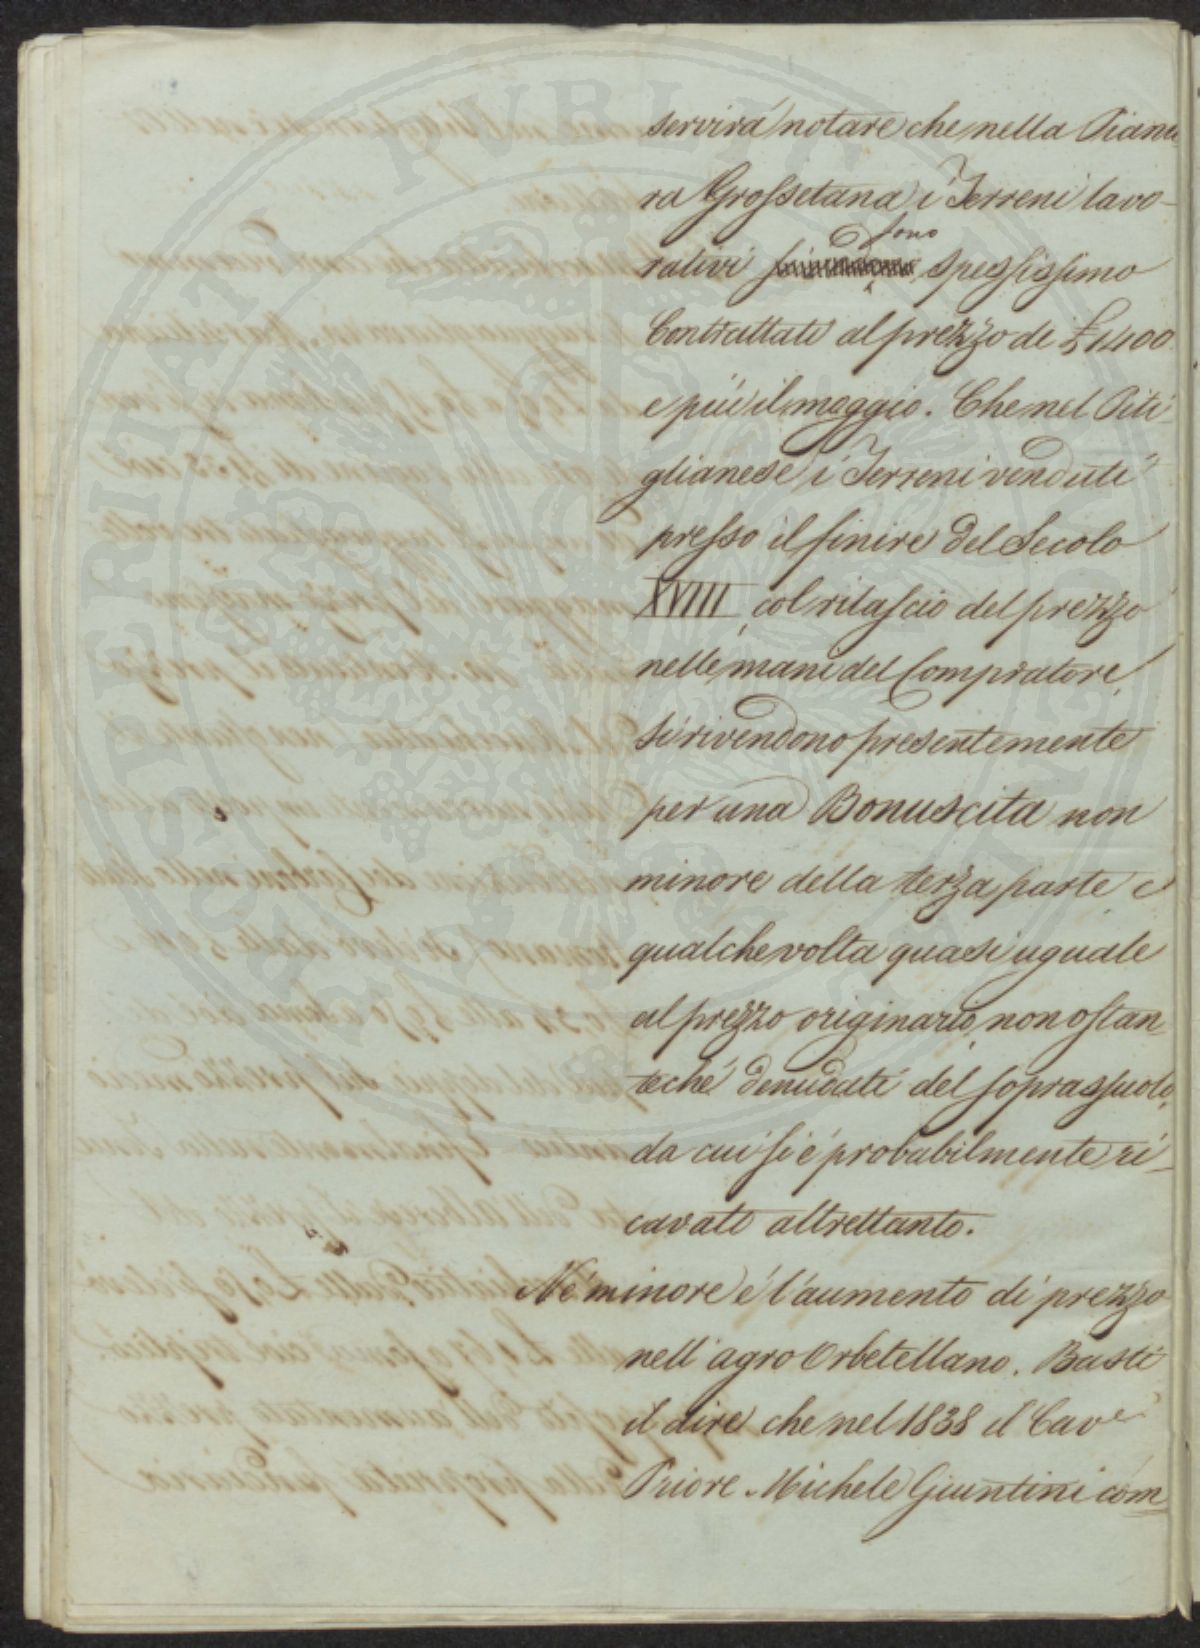 servirá notare che nella Pianu
ra Grossetana i Terreni lavo-
sono
rativi spessissimo
Contrattati al prezzo di £ 1400
e piú il moggio. Che nel Piti-
glianese i Terreni venduti
presso il finire del Secolo
XVIII, col rilascio del prezzo
nelle mani del Compratore,
si rivendono presentemente
per una Bonuscita non
minore della terza parte e
qualche volta quasi uguale
al prezzo originario, non ostan-
teché denudati del soprassuolo,
da cui si é probabilmente ri-
cavato altrettanto.
Né minore é l'aumento di prezzo
nell'agro Orbetellano. Basti
il dire che nel 1838 il Cav.e
Priore Michele Giuntini com